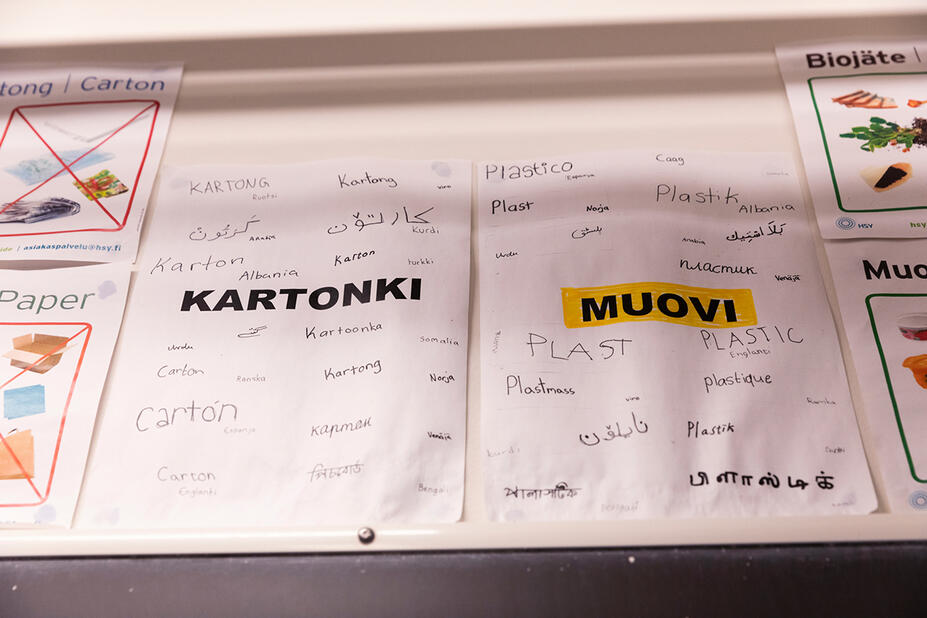 tong | Carton
ide | asiakaspalvelu@hsy.fi
Paper
KARTONG
Ruotsi
Kartong
viro
كَرتُون
Arabia
كارلتۆن
Kurdi
Karton
Albania
Karton
turkki
KARTONKI
Urdu
Kartoonka
Somalia
Carton
Ranska
Kartong
Norja
Cartón
Espanja
картен
Venäjä
Carton
Englanti
Bengali
Plastico
Espanja
Caag
Somalia
Plast
Norja
Plastik
Albania
Urdu
Arabia
بَلاَستِيك
пластик
Venäjä
MUOVI
PLAST
PLASTIC
Englanti
Plastmass
viro
plastique
Ranska
kurdi
نایلۆن
Plastik
பிளாஸ்டிக்
Bengali
Biojäte |
HSY
Muo